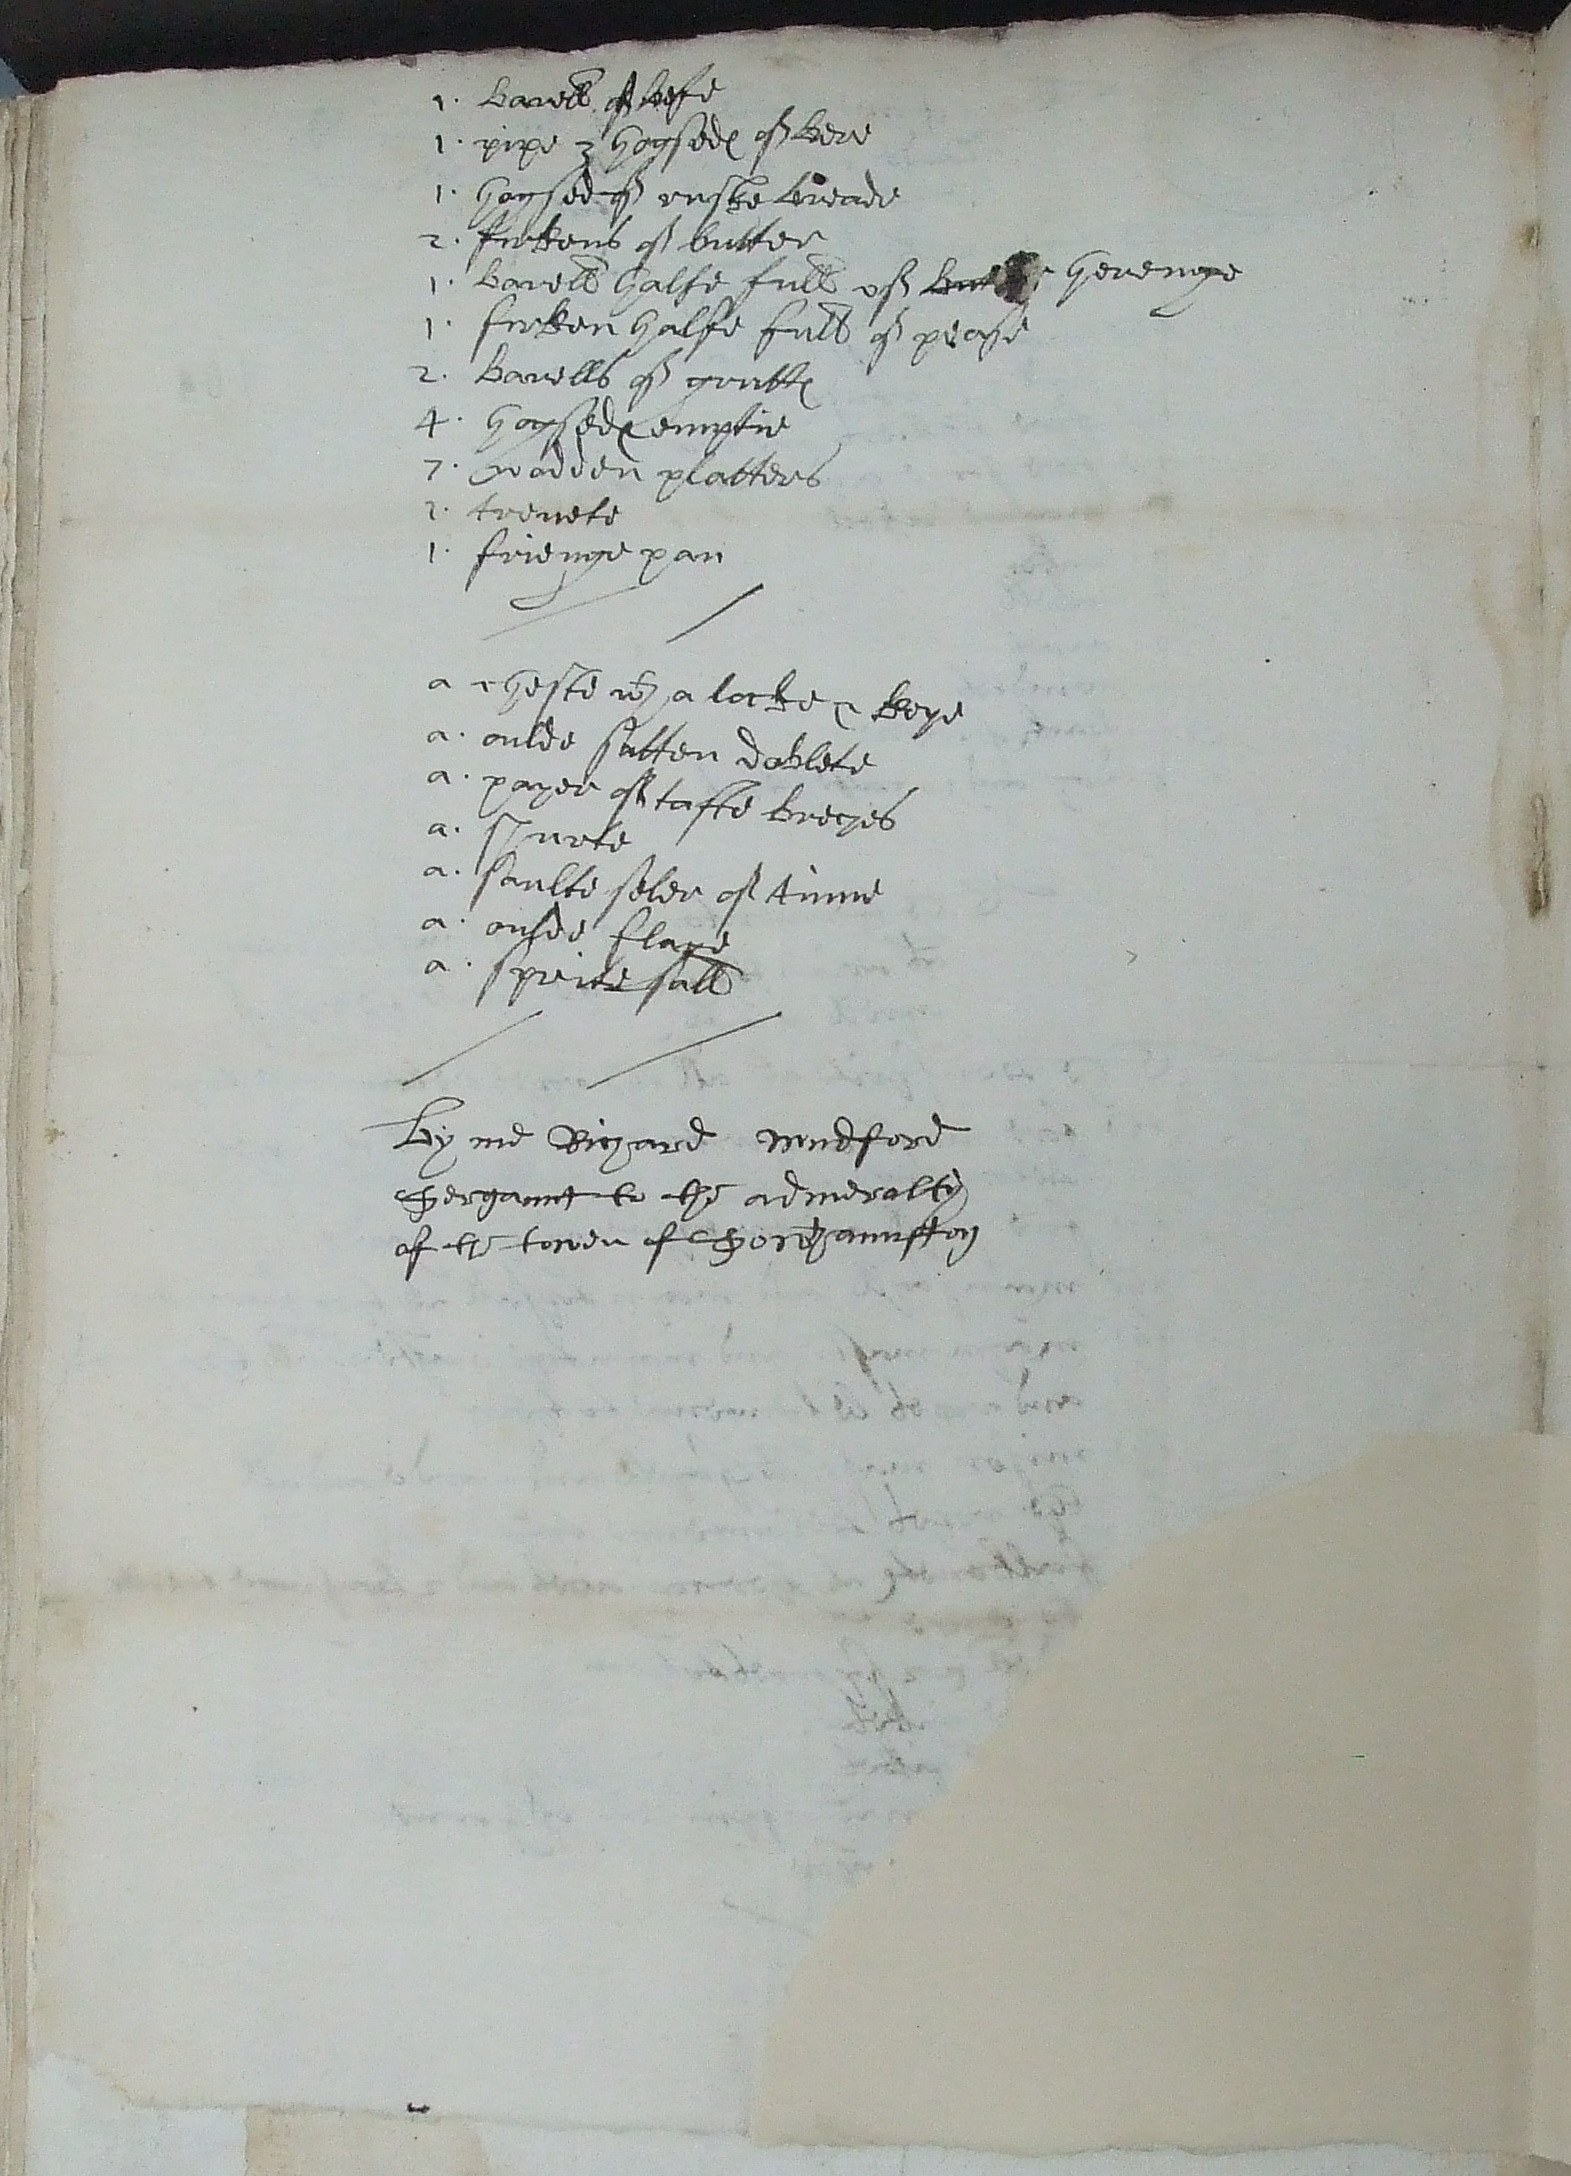 1. barell of befe
1. pipe 3 hogsedes of bere
1. hogsed of ruske breade
2. firkens of butter
1. barell halfe full of herenge
1. firken halfe full of pease
2. barells of grutts
4. hogsedes emptie
7. wodden platters
2. trenete
1. frienge pan
a cheste wth a locke & keye
a. oulde satten dublete
a. payer of tafte breches
a. shurte
a. saulte seler of tinne
a. oulde flage
a. sprite sall
By me Richard Mudford
Sergaunt to the admeralty
of the towen of Sowthamtton